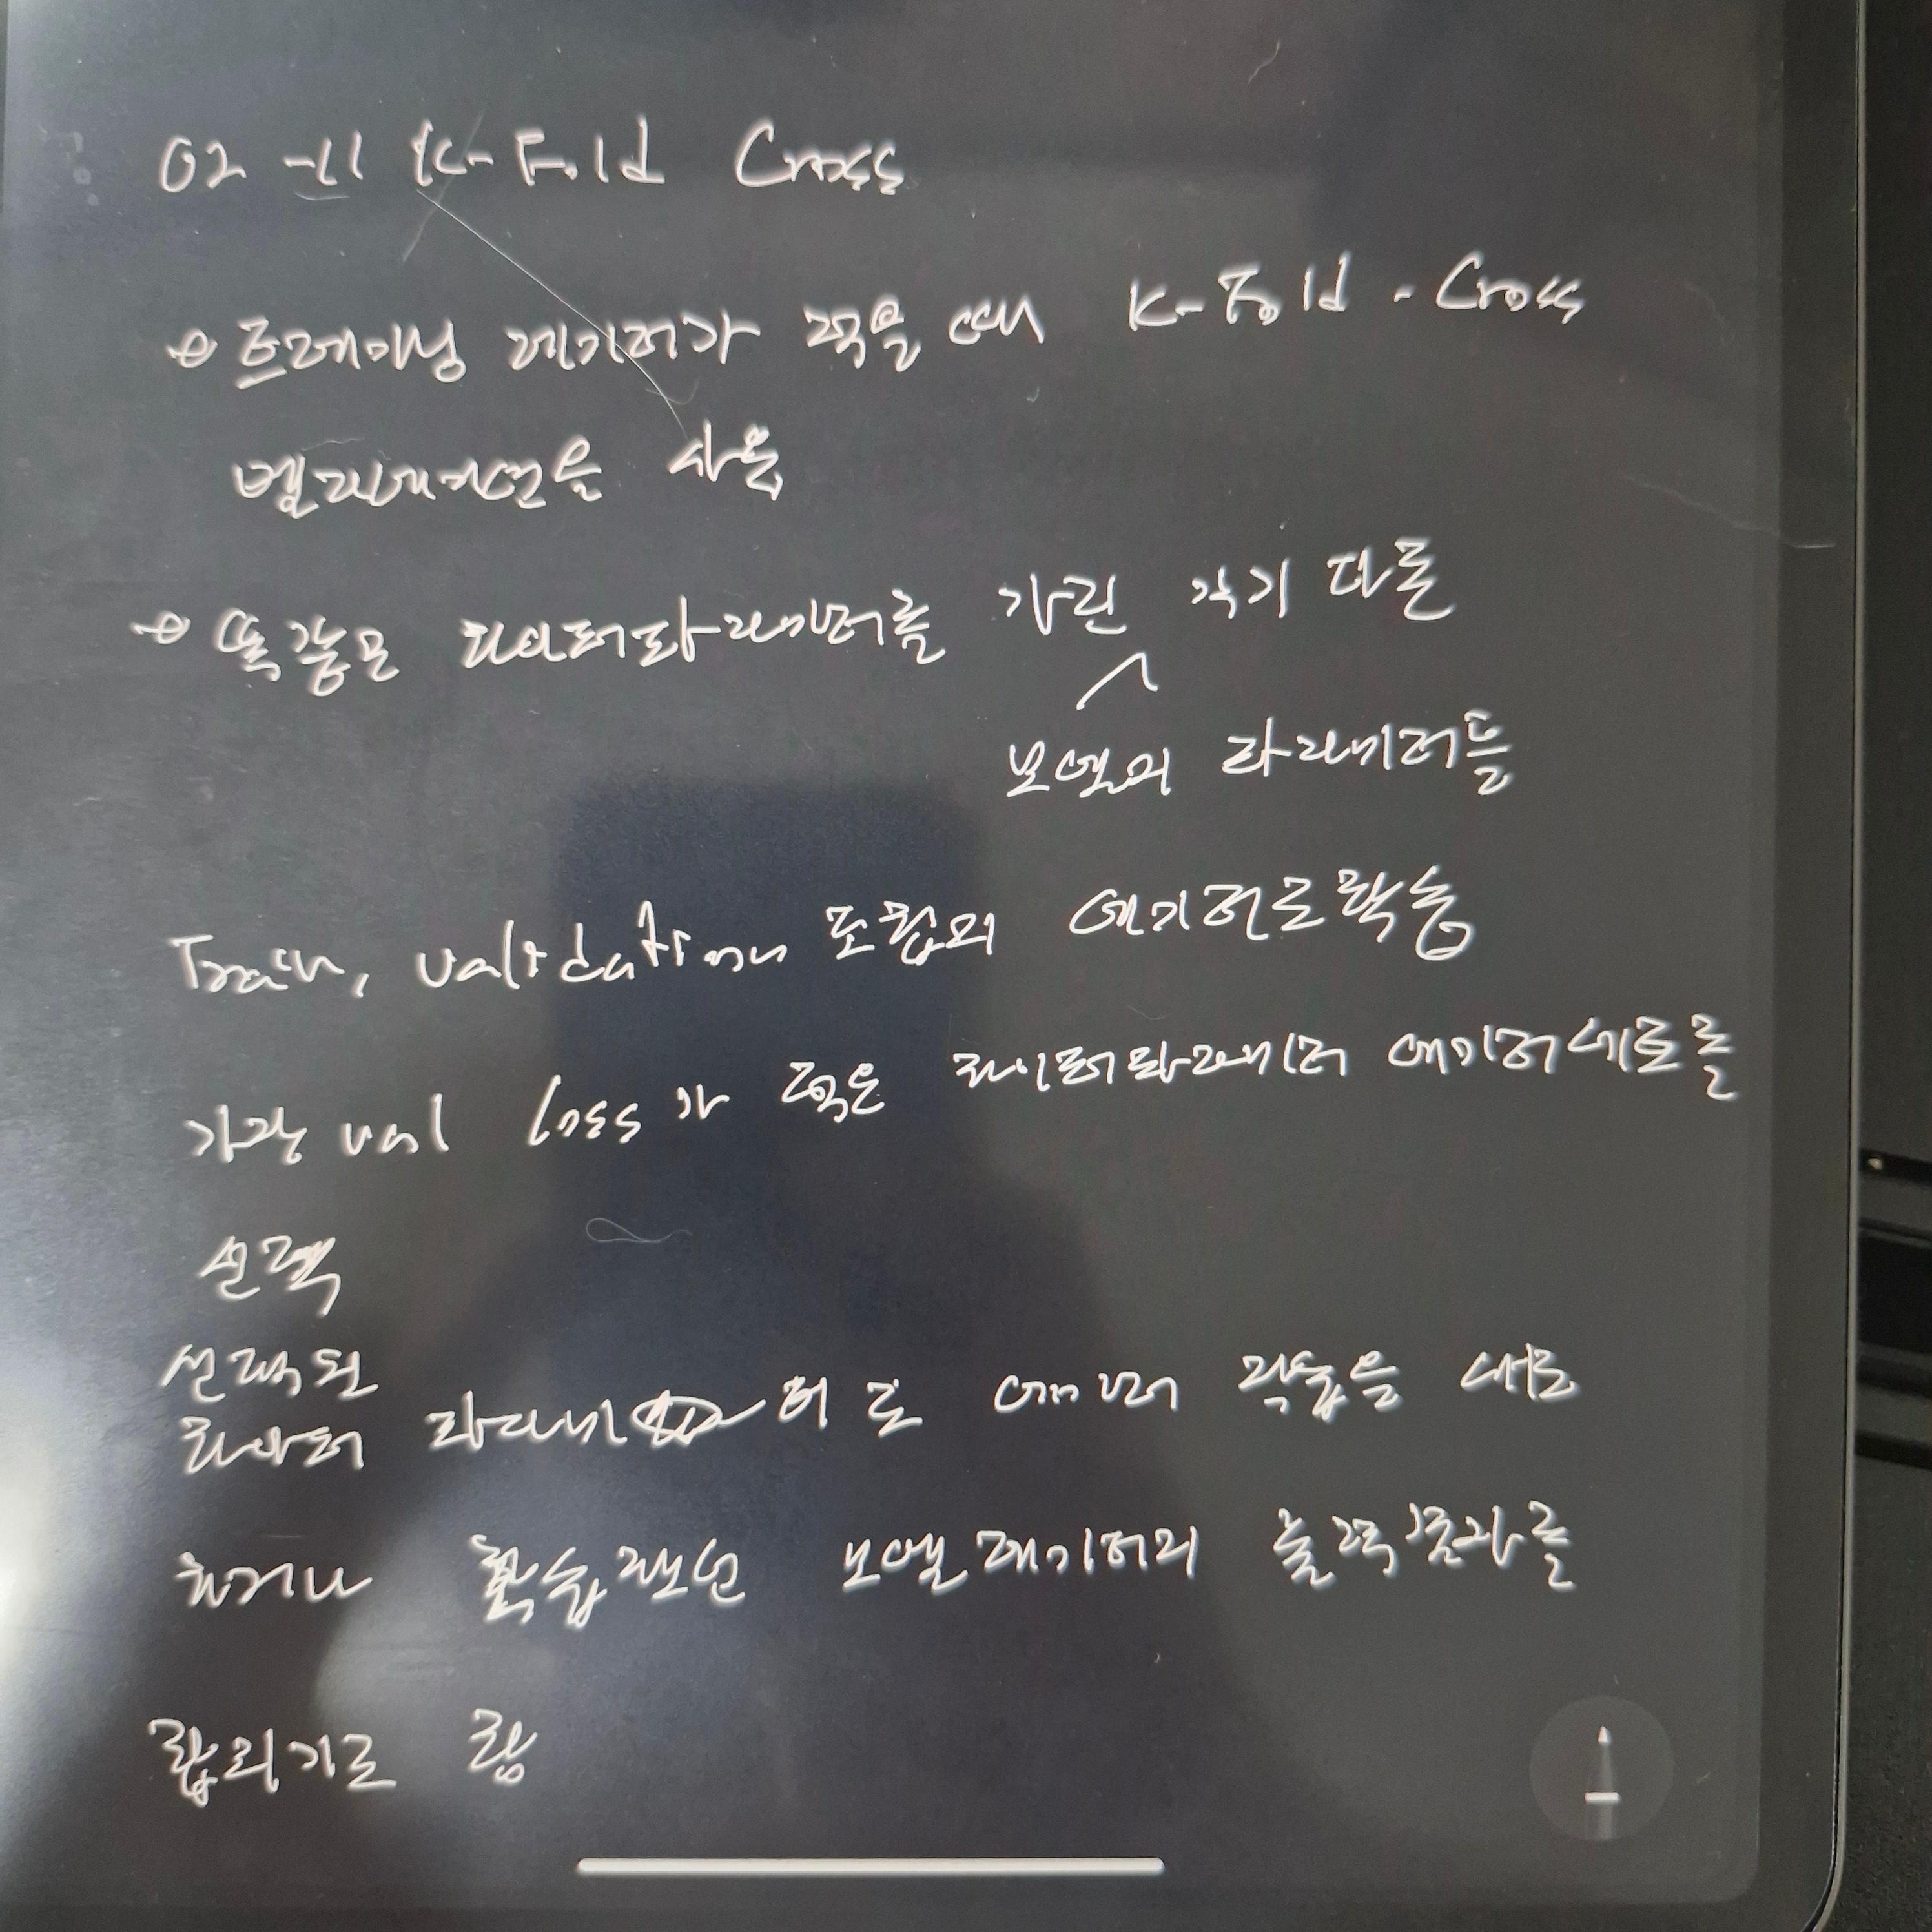 02-11 K-Fold Cross
트레이닝 데이터가 적을 때 K-Fold-Cross
벨리데이션을 사용
똑같은 하이퍼파라미터를 가진 각기 다른
모델의 파라미터들
Train, validation 조합의 데이터로 학습
가장 val loss가 적은 하이퍼파라미터 데이터세트를
선택
선택된
하이퍼 파라미터로 학습을 새로
하거나 학습했던 모델
합의기로 함